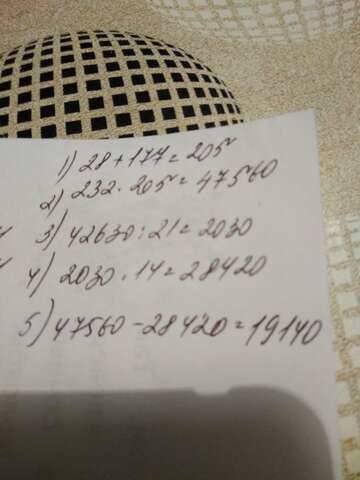 1) 28 + 177 = 205
2) 232 · 205 = 47560
3) 42630 : 21 = 2030
4) 2030 · 14 = 28420
5) 47560 - 28420 = 19140